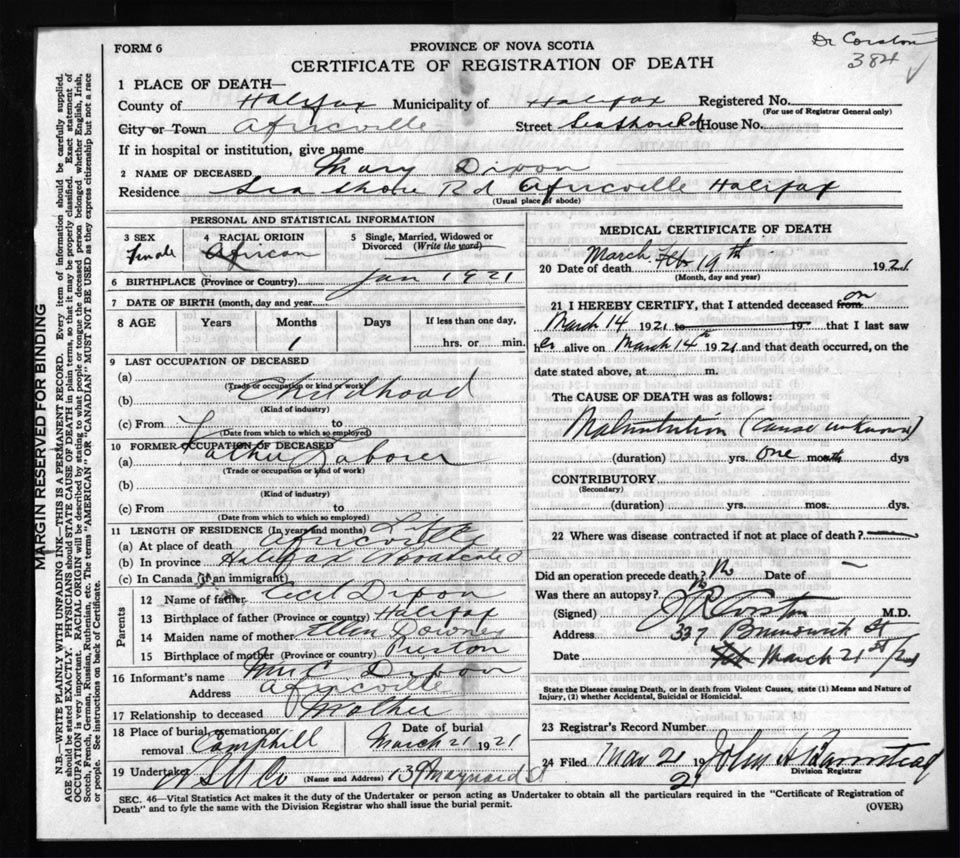 Dr Corston
384
FORM 6
PROVINCE OF NOVA SCOTIA
CERTIFICATE OF REGISTRATION OF DEATH
MARGIN RESERVED FOR BINDING
N.B.—WRITE PLAINLY WITH UNFADING INK—THIS IS A PERMANENT RECORD. Every item of information should be carefully supplied.
AGE should be stated EXACTLY. PHYSICIANS should STATE CAUSE OF DEATH in plain terms, so that it may be properly classified. Exact statement of
OCCUPATION is very important. RACIAL ORIGIN will be described by stating to what people or tongue the deceased person belonged whether English, Irish,
Scotch, French, German, Russian, Ruthenian, etc. The terms "AMERICAN" OR "CANADIAN" MUST NOT BE USED as they express citizenship but not a race
or people. See instructions on back of Certificate.
1 PLACE OF DEATH—
County of Halifax Municipality of Halifax Registered No.
(For use of Registrar General only)
City or Town Africville Street Sea Shore Rd (House No.
If in hospital or institution, give name
2 NAME OF DECEASED Mary Dixon
Residence Sea Shore Rd Africville Halifax
(Usual place of abode)
PERSONAL AND STATISTICAL INFORMATION
3 SEX 4 RACIAL ORIGIN 5 Single, Married, Widowed or
Divorced (Write the word)
Female African
6 BIRTHPLACE (Province or Country)
Jan 1921
7 DATE OF BIRTH (month, day and year)
8 AGE Years Months Days If less than one day,
1 hrs. or min.
9 LAST OCCUPATION OF DECEASED
(a)
(Trade or occupation or kind of work)
(b) Childhood
(Kind of industry)
(c) From to
(Date from which to which so employed)
10 FORMER OCCUPATION OF DECEASED
(a) Father Laborer
(Trade or occupation or kind of work)
(b)
(Kind of industry)
(c) From to
(Date from which to which so employed)
11 LENGTH OF RESIDENCE (In years and months) Life
(a) At place of death Africville
(b) In province Halifax
(c) In Canada (if an immigrant)
Parents
12 Name of father Cecil Dixon
13 Birthplace of father (Province or country) Halifax
14 Maiden name of mother Ellen Downey
15 Birthplace of mother (Province or country) Preston
16 Informant's name Mrs C Dixon
Address Africville
17 Relationship to deceased Mother
18 Place of burial, cremation or Date of burial
removal Camphill March 21 1921
19 Undertaker (Name and Address) Maynard St
MEDICAL CERTIFICATE OF DEATH
20 Date of death March Feb 19th 1921
(Month, day and year)
21 I HEREBY CERTIFY, that I attended deceased from on
March 14 1921 to 19 that I last saw
her alive on March 14th 1921 and that death occurred, on the
date stated above, at m.
The CAUSE OF DEATH was as follows:
Malnutrition (Cause unknown)
(duration) yrs. one month dys
CONTRIBUTORY
(Secondary)
(duration) yrs. mos. dys.
22 Where was disease contracted if not at place of death?
Did an operation precede death? No Date of —
Was there an autopsy? No
(Signed) Corston M.D.
Address 337 Brunswick St
Date Feb March 21st/21
State the Disease causing Death, or in death from Violent Causes, state (1) Means and Nature of
Injury, (2) whether Accidental, Suicidal or Homicidal.
23 Registrar's Record Number
24 Filed Mar 21 19 21 John
Division Registrar
SEC. 46—Vital Statistics Act makes it the duty of the Undertaker or person acting as Undertaker to obtain all the particulars required in the "Certificate of Registration of
Death" and to fyle the same with the Division Registrar who shall issue the burial permit. (OVER)